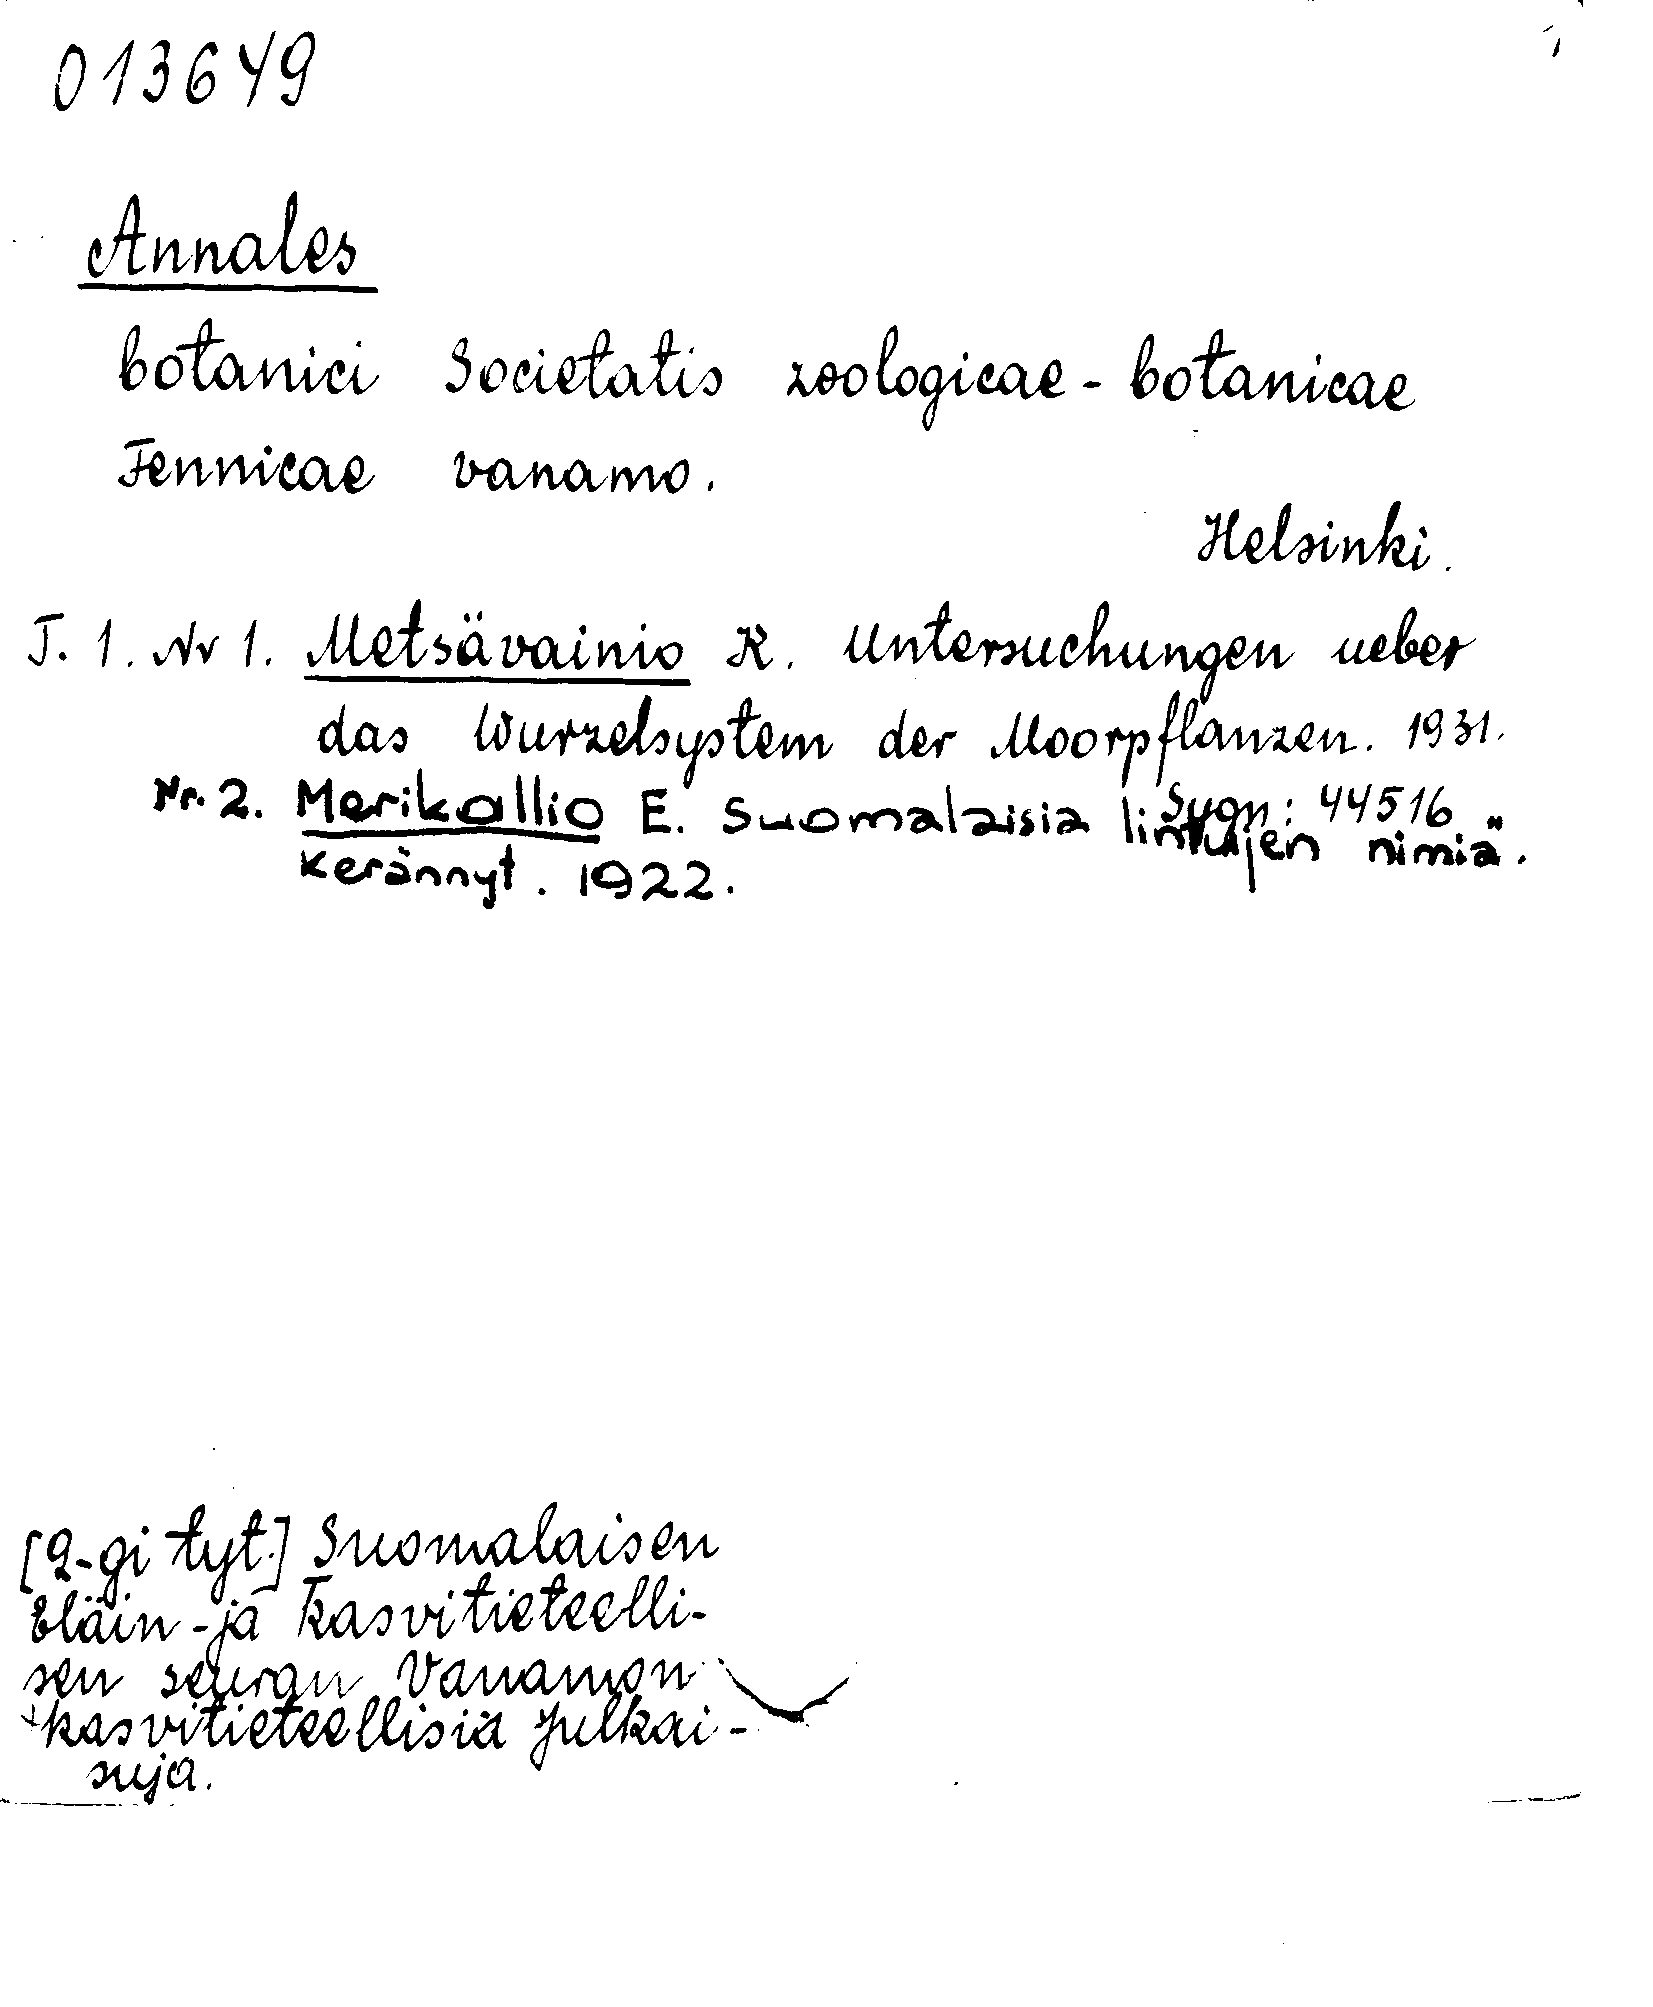 013649
Annales
botanici Societatis zoologicae - botanicae
Fennicae vanamo.
Helsinki.
T. 1. Nr 1. Metsävainio K. Untersuchungen ueber
das Wurzelsystem der Moorpflanzen. 1931.
Sygn: 44516
Nr. 2. Merikallio E. Suomalaisia lintujen nimiä.
kerännyt. 1922.
[2-gi tyt.] Suomalaisen
Eläin - ja Kasvitieteelli-
sen seuran Vanamon
kasvitieteellisiä julkai-
suja.